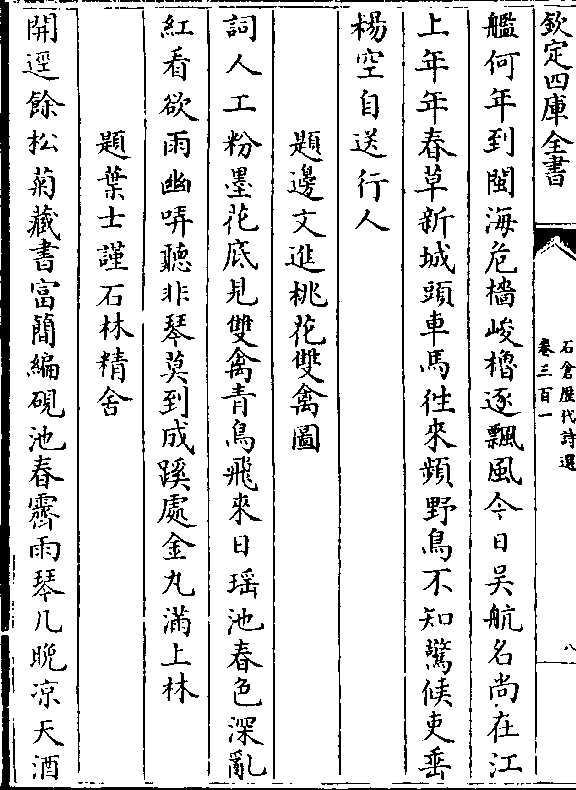 欽定四庫全書
石倉歷代詩選
卷三百一
八
艦何年到閩海危檣峻櫓逐飄風今日吳航名尚在江
上年年春草新城頭車馬徃來頻野鳥不知驚候吏垂
楊空自送行人
題邊文進桃花雙禽圖
詞人工粉墨花底見雙禽青鳥飛來日瑶池春色深亂
紅看欲雨幽哢聽非琴莫到成蹊處金丸滿上林
題葉士謹石林精舍
開逕餘松菊藏書富簡編硯池春霽雨琴几晚凉天酒